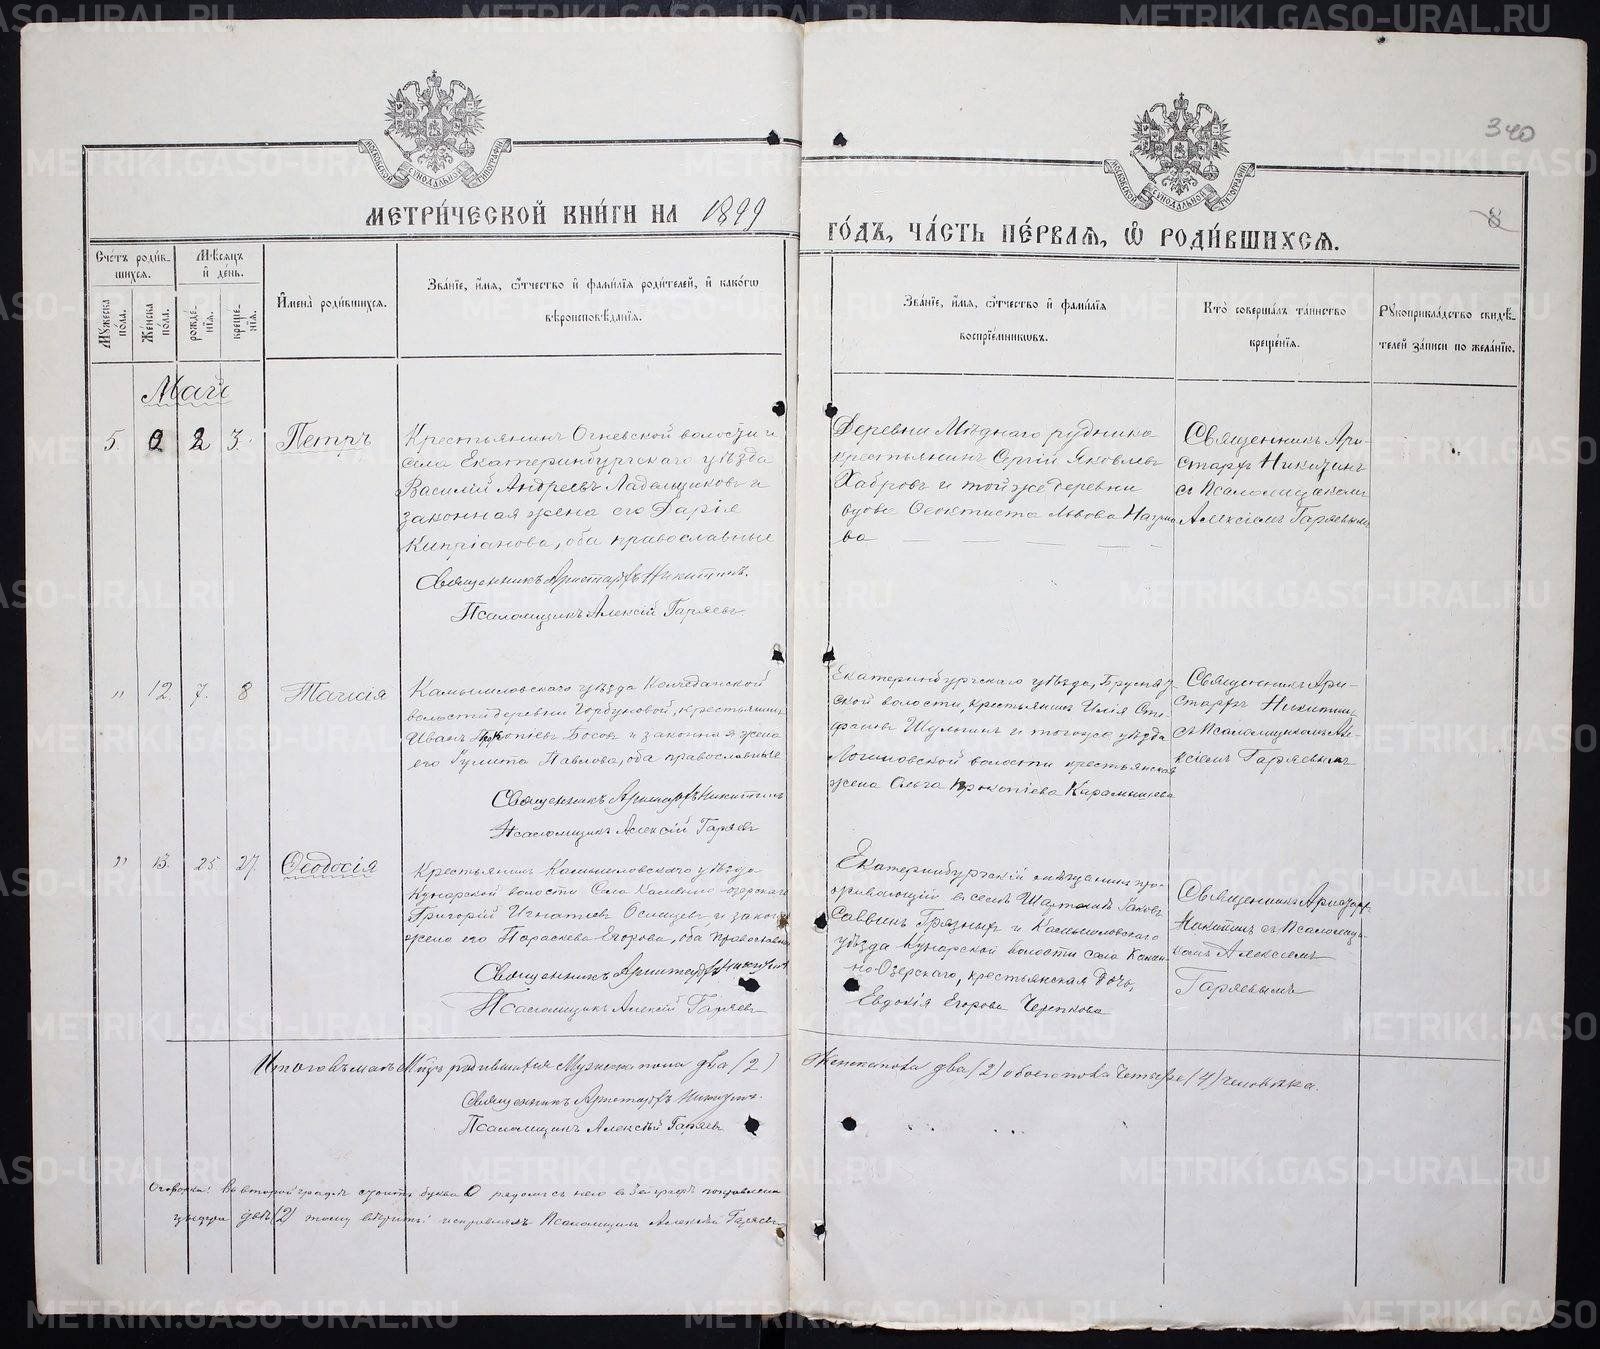 МЕТРИ́ЧЕСКОЙ КНИ́ГИ НА 1899
ГО́ДЪ, ЧА́СТЬ ПЕ́РВАЯ, Ѿ РОДИ́ВШИХСЯ.
340
8
МОСКОВСКОЙ СѴНОДАЛЬНОЙ ТИПОГРАФІИ
МОСКОВСКОЙ СѴНОДАЛЬНОЙ ТИПОГРАФІИ
Счетъ роди́в-
шихся.
Мѣсяцъ
и҆ де́нь.
Мꙋжеска по́ла.
Же́нска по́ла.
рожде́-
нїя.
креще́-
нїя.
И҆мена̀ роди́вшихся.
Зва́нїе, и҆́мя, ѻ҆́тчество и҆ фами́лїя роди́телей, и҆ како́гѡ
вѣроисповѣ́данїя.
Зва́нїе, и҆́мя, ѻ҆́тчество и҆ фами́лїя
воспрїе́мниковъ.
Кто̀ соверша́лъ та́инство
креще́нїя.
Рꙋкоприкла́дство свидѣ́-
телей за́писи по жела́нїю.
Май
5. 0 2 3. Петръ
Крестьянинъ Огневской волости и
села Екатеринбургскаго уѣзда
Василій Андреевъ Ладельщиковъ и
законная жена его Дарія
Кипріанова, оба православные
Священникъ Аристархъ Никитинъ.
Псаломщикъ Алексій Гаряевъ.
Деревни Мѣднаго рудника
крестьянинъ Сергій Яковлевъ
Хабровъ и той же деревни
вдова Ѳеоктиста Львова
ва
Священникъ Ари-
стархъ Никитинъ
съ Псаломщикомъ
Алексіемъ Гаряевымъ
" 12. 7. 8 Таисія
Камышловскаго уѣзда Колчеданской
волости деревни Горбуновой, крестьянинъ
Иванъ Прокопіевъ Босовъ и законная жена
его Іулита Павлова, оба православные
Священникъ Аристархъ Никитинъ
Псаломщикъ Алексій Гаряевъ
Екатеринбургскаго уѣзда, Брусян-
ской волости, крестьянинъ Илія Сте-
фановъ Шульгинъ и тогоже уѣзда
Логиновской волости крестьянская
жена Ольга Прокопіева Карамышева
Священникъ Ари-
стархъ Никитинъ
съ Псаломщикомъ Але-
ксіемъ Гаряевымъ
" 13. 25. 27. Ѳеодосія
Крестьянинъ Камышловскаго уѣзда
Кунарской волости Села Каменно-озерскаго
Григорій Игнатіевъ Ослицевъ и закон
жена его Параскева Егорова, оба православн
Священникъ Аристархъ Никитинъ
Псаломщикъ Алексій Гаряевъ
Екатеринбургскій мѣщанинъ про-
живающій въ селѣ Яковъ
Саввинъ Грязныхъ и Камышловскаго
уѣзда Кунарской волости села Камен-
но-Озерскаго, крестьянская дочь,
Евдокія Егорова Черепкова
Священникъ Аристархъ
Никитинъ съ Псаломщи-
комъ Алексіемъ
Гаряевымъ
Итого въ маѣ М-цѣ родившихся Мужеска пола два (2)
Женска пола два (2) обоего пола Четыре (4) человѣка.
Священникъ Аристархъ Никитинъ.
Псаломщикъ Алексѣй Гаряевъ
Оговорка: Во второй графѣ стоитъ буква О рядомъ съ нею въ 3ей графѣ поправлена
цыфра двѣ (2) тому вѣрить: исправлялъ Псаломщикъ Алексѣй Гаряевъ
METRIKI.GASO-URAL.RU